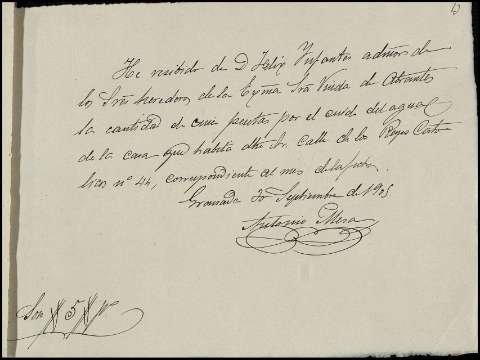 He recibido de D. Felix Ynfantes admor de
los Sres herederos de la Exma Sra Viuda de Abrantes
la cantidad de cinco pesetas por el cuido del agua
de la casa que habita dho Sr. calle de los Reyes Cató-
licos nº 44, correspondiente al mes de la fecha.
Granada 30 Septiembre de 1905
Antonio Mesa
Son # 5 # pts